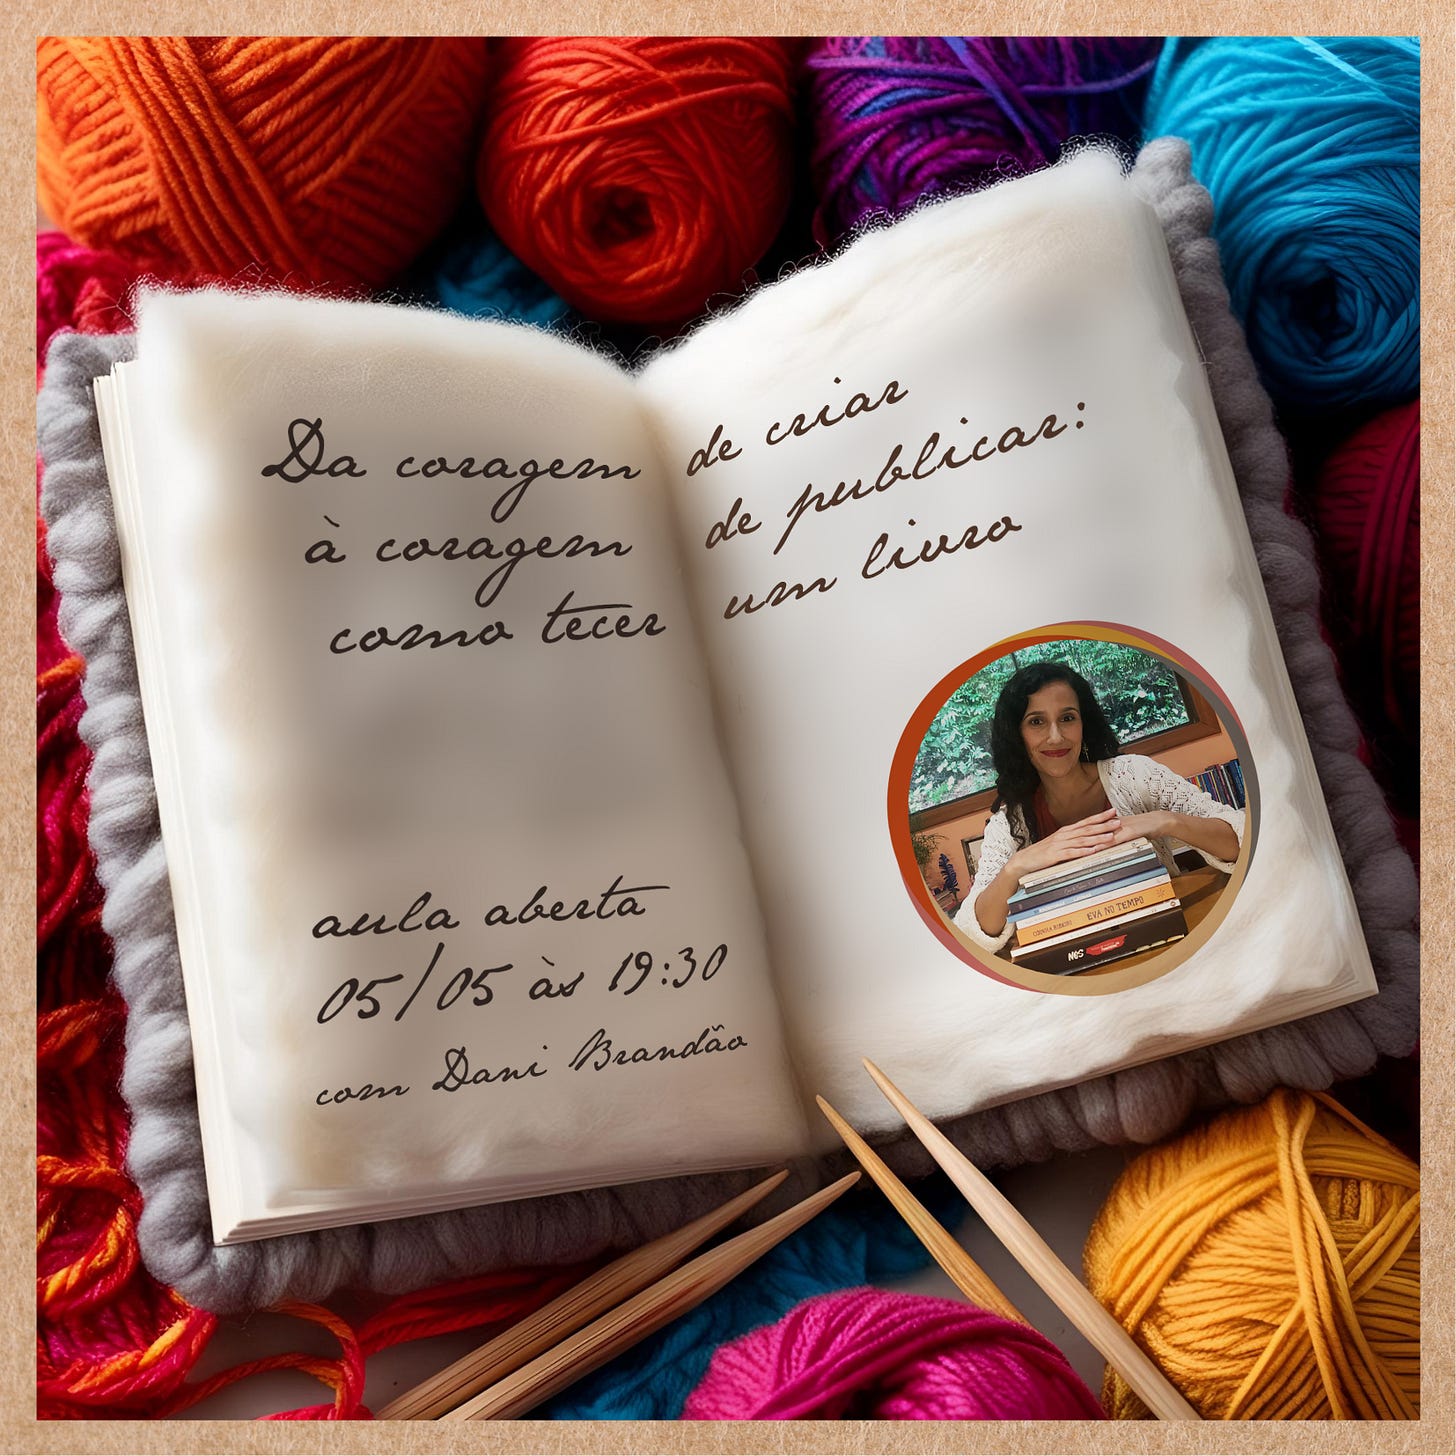 Da coragem de criar
à coragem de publicar:
como tecer um livro
aula aberta
05/05 às 19:30
com Dani Brandão
EVA NO TEMPO
NÓS